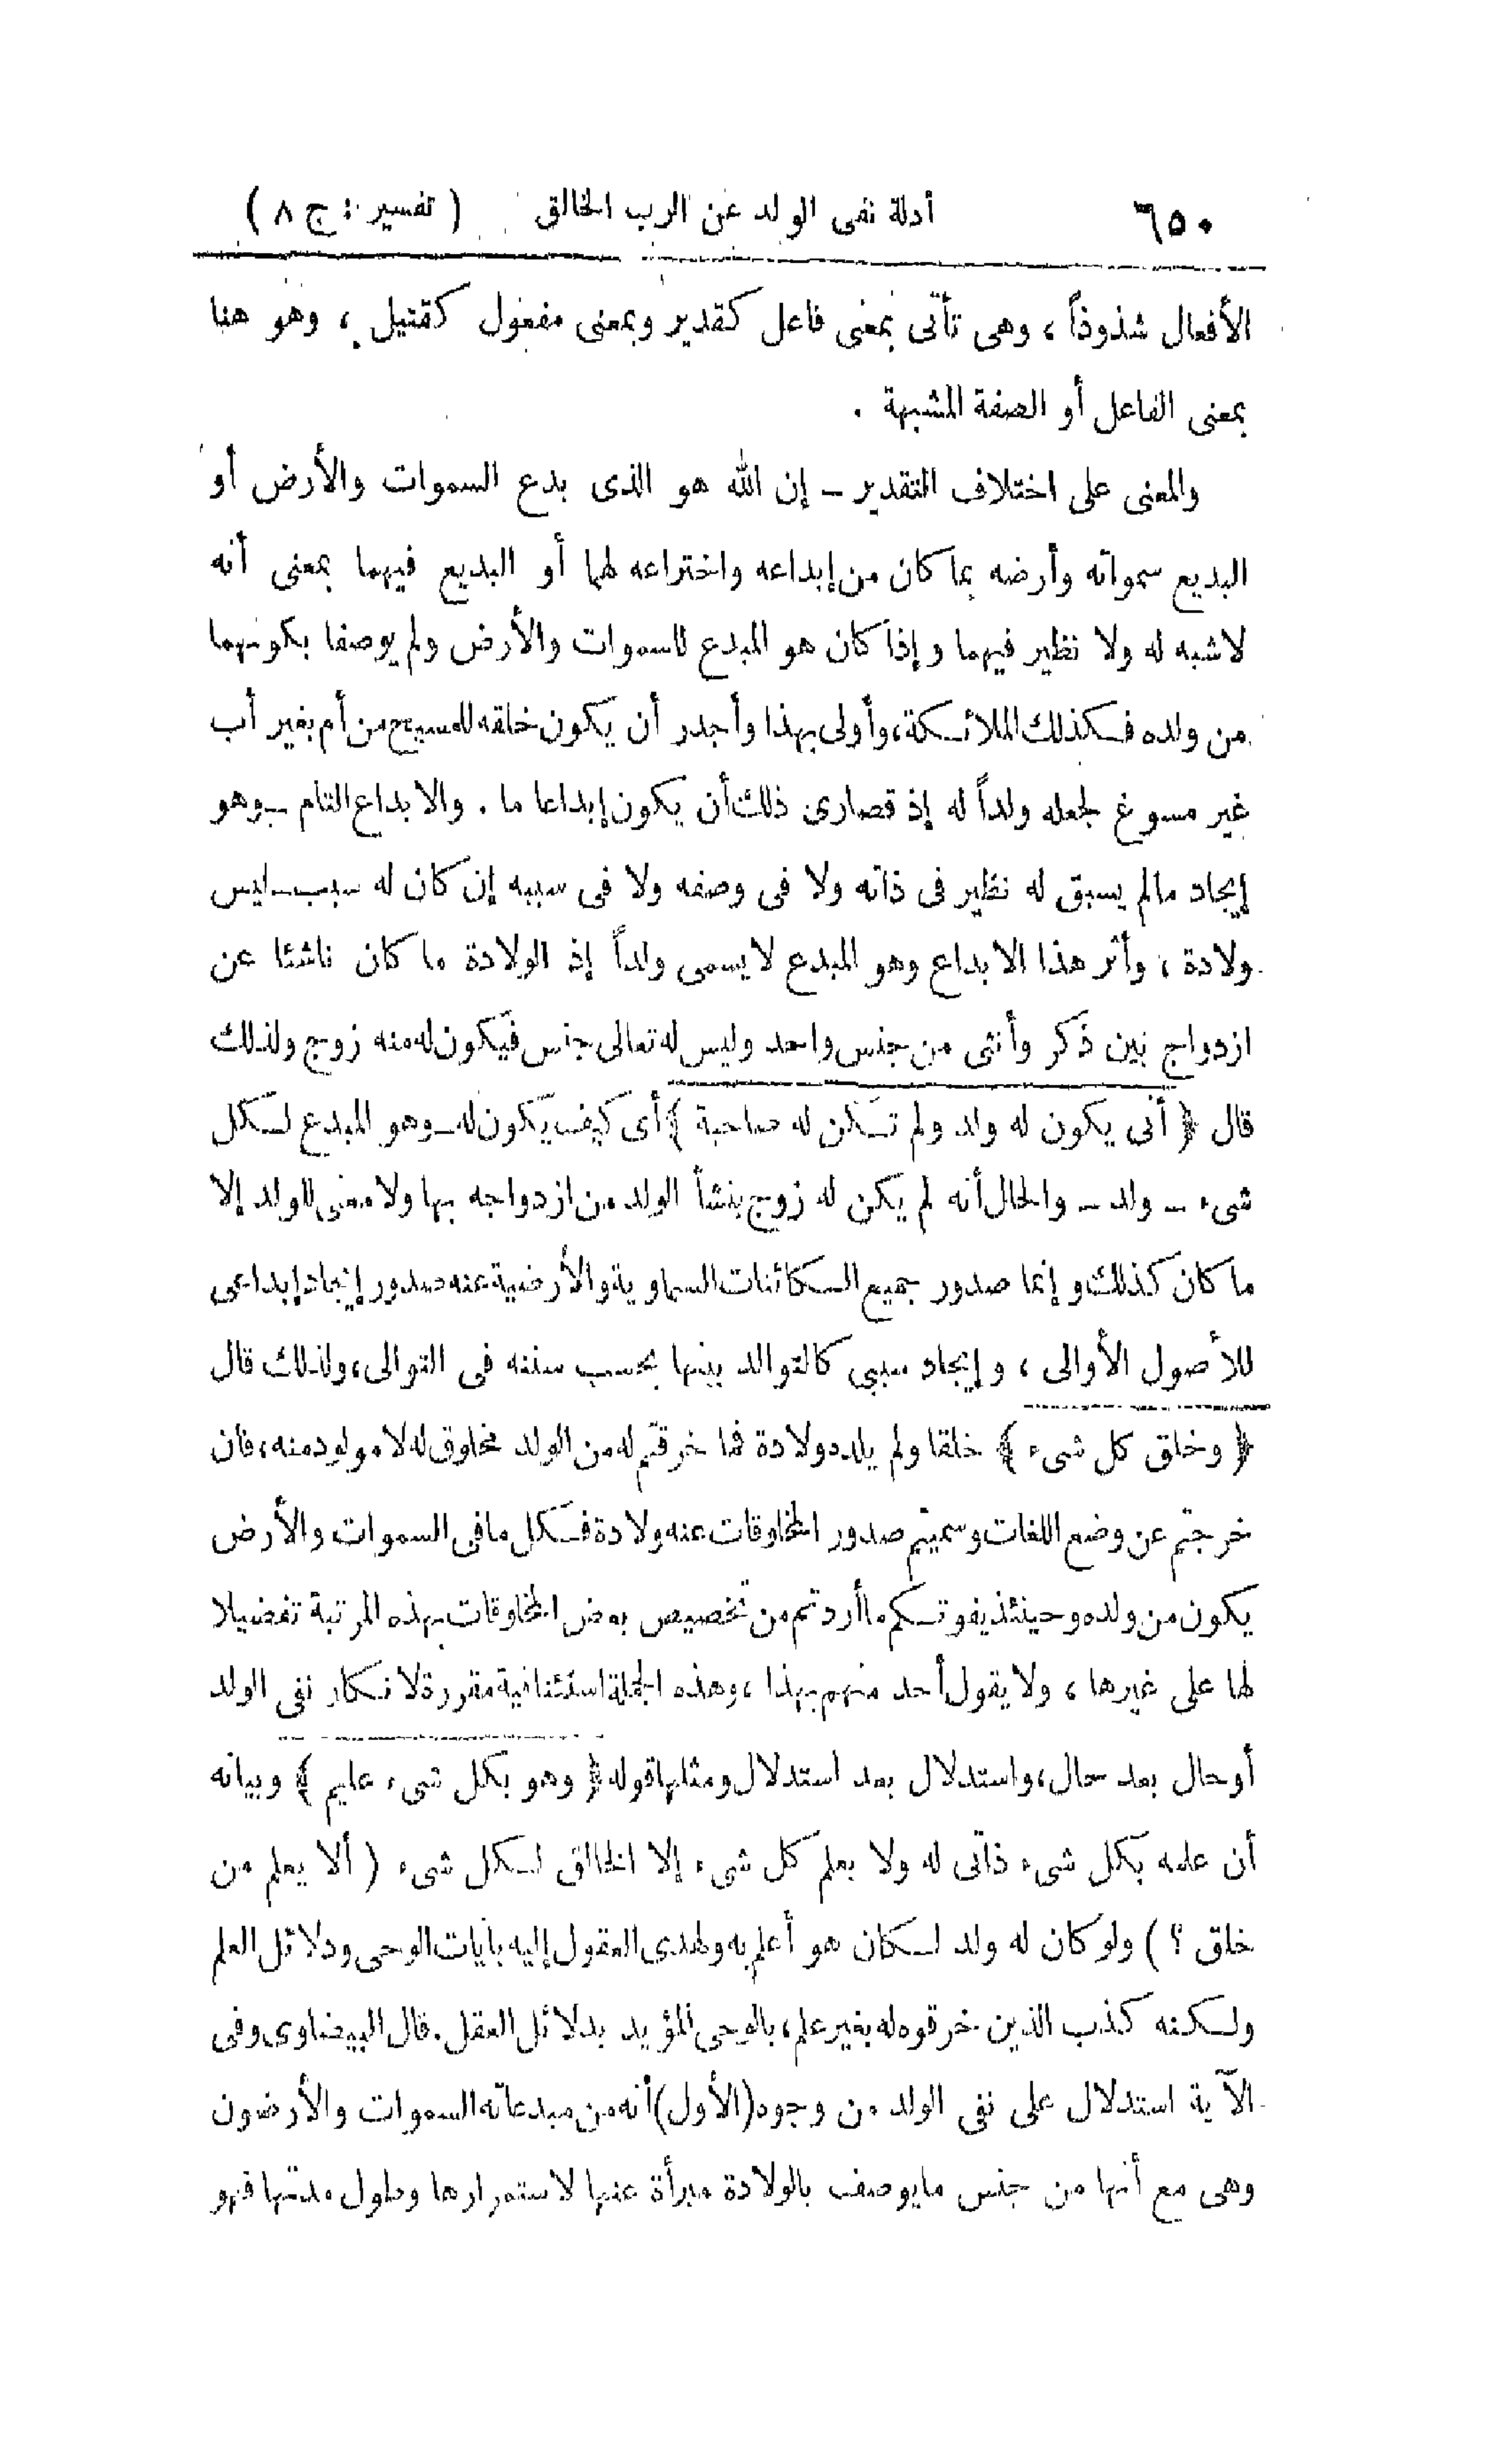 ٦٥٠ أدلة نفى الولد عن الرب الخالق ( تفسير : ج ٨ )
الأفعال شذوذاً ، وهى تأتى بمعنى فاعل كقدير وبمعنى مفعول كقتيل ، وهو هنا
بمعنى الفاعل أو الصفة المشبهة .
والمعنى على اختلاف التقدير ــ إن الله هو الذى بدع السموات والأرض أو
البديع سمواته وأرضه بما كان من إبداعه واختراعه لهما أو البديع فيهما بمعنى أنه
لا شبه له ولا نظير فيهما وإذا كان هو المبدع للسموات والأرض ولم يوصفا بكونهما
من ولده فكذلك الملائكة ، وأولى بهذا وأجدر أن يكون خلقه للمسيح من أم بغير أب
غير مسوغ لجعله ولداً له إذ قصارى ذلك أن يكون إبداعا ما . والابداع التام ــ وهو
إيجاد مالم يسبق له نظير فى ذاته ولا فى وصفه ولا فى سببه إن كان له سبب ــ ليس
ولادة ، وأثر هذا الابداع وهو المبدع لا يسمى ولداً إذ الولادة ما كان ناشئا عن
ازدواج بين ذكر وأنثى من جنس واحد وليس له تعالى جنس فيكون له منه زوج ولذلك
قال ﴿ أنى يكون له ولد ولم تكن له صاحبة ﴾ أى كيف يكون له ــ وهو المبدع لكل
شىء ــ ولد ــ والحال أنه لم يكن له زوج ينشأ الولد من ازدواجه بها ولا معنى للولد إلا
ما كان كذلك وإنما صدور جميع الكائنات السماوية والأرضية عنه صدور إيجاد إبداعى
للأصول الأوالى ، وإيجاد سببى كالتوالد بينها بحسب سننه فى التوالى ، ولذلك قال
﴿ وخلق كل شىء ﴾ خلقا ولم يلده ولادة فما خرقتم له من الولد مخلوق له لا مولود منه ، فان
خرجتم عن وضع اللغات وسميتم صدور المخلوقات عنه ولادة فكل ما فى السموات والأرض
يكون من ولده وحينئذ يفوتكم ما أردتم من تخصيص بعض المخلوقات بهذه المرتبة تفضيلا
لها على غيرها ، ولا يقول أحد منهم بهذا ، وهذه الجملة استئنافية مقررة لانكار نفى الولد
أو حال بعد حال ، واستدلال بعد استدلال ومثلها قوله ﴿ وهو بكل شىء عليم ﴾ وبيانه
أن علمه بكل شىء ذاتى له ولا يعلم كل شىء إلا الخالق لكل شىء ( ألا يعلم من
خلق ؟ ) ولو كان له ولد لكان هو أعلم به ولهدى العقول إليه بآيات الوحى ودلائل العلم
ولكنه كذب الذين خرقوه له بغير علم ، بالوحى المؤيد بدلائل العقل . قال البيضاوى وفى
الآية استدلال على نفى الولد من وجوه (الأول) أنه من مبدعاته السموات والأرضون
وهى مع أنها من جنس ما يوصف بالولادة مبرأة عنها لاستمرارها وطول مدتها فهو